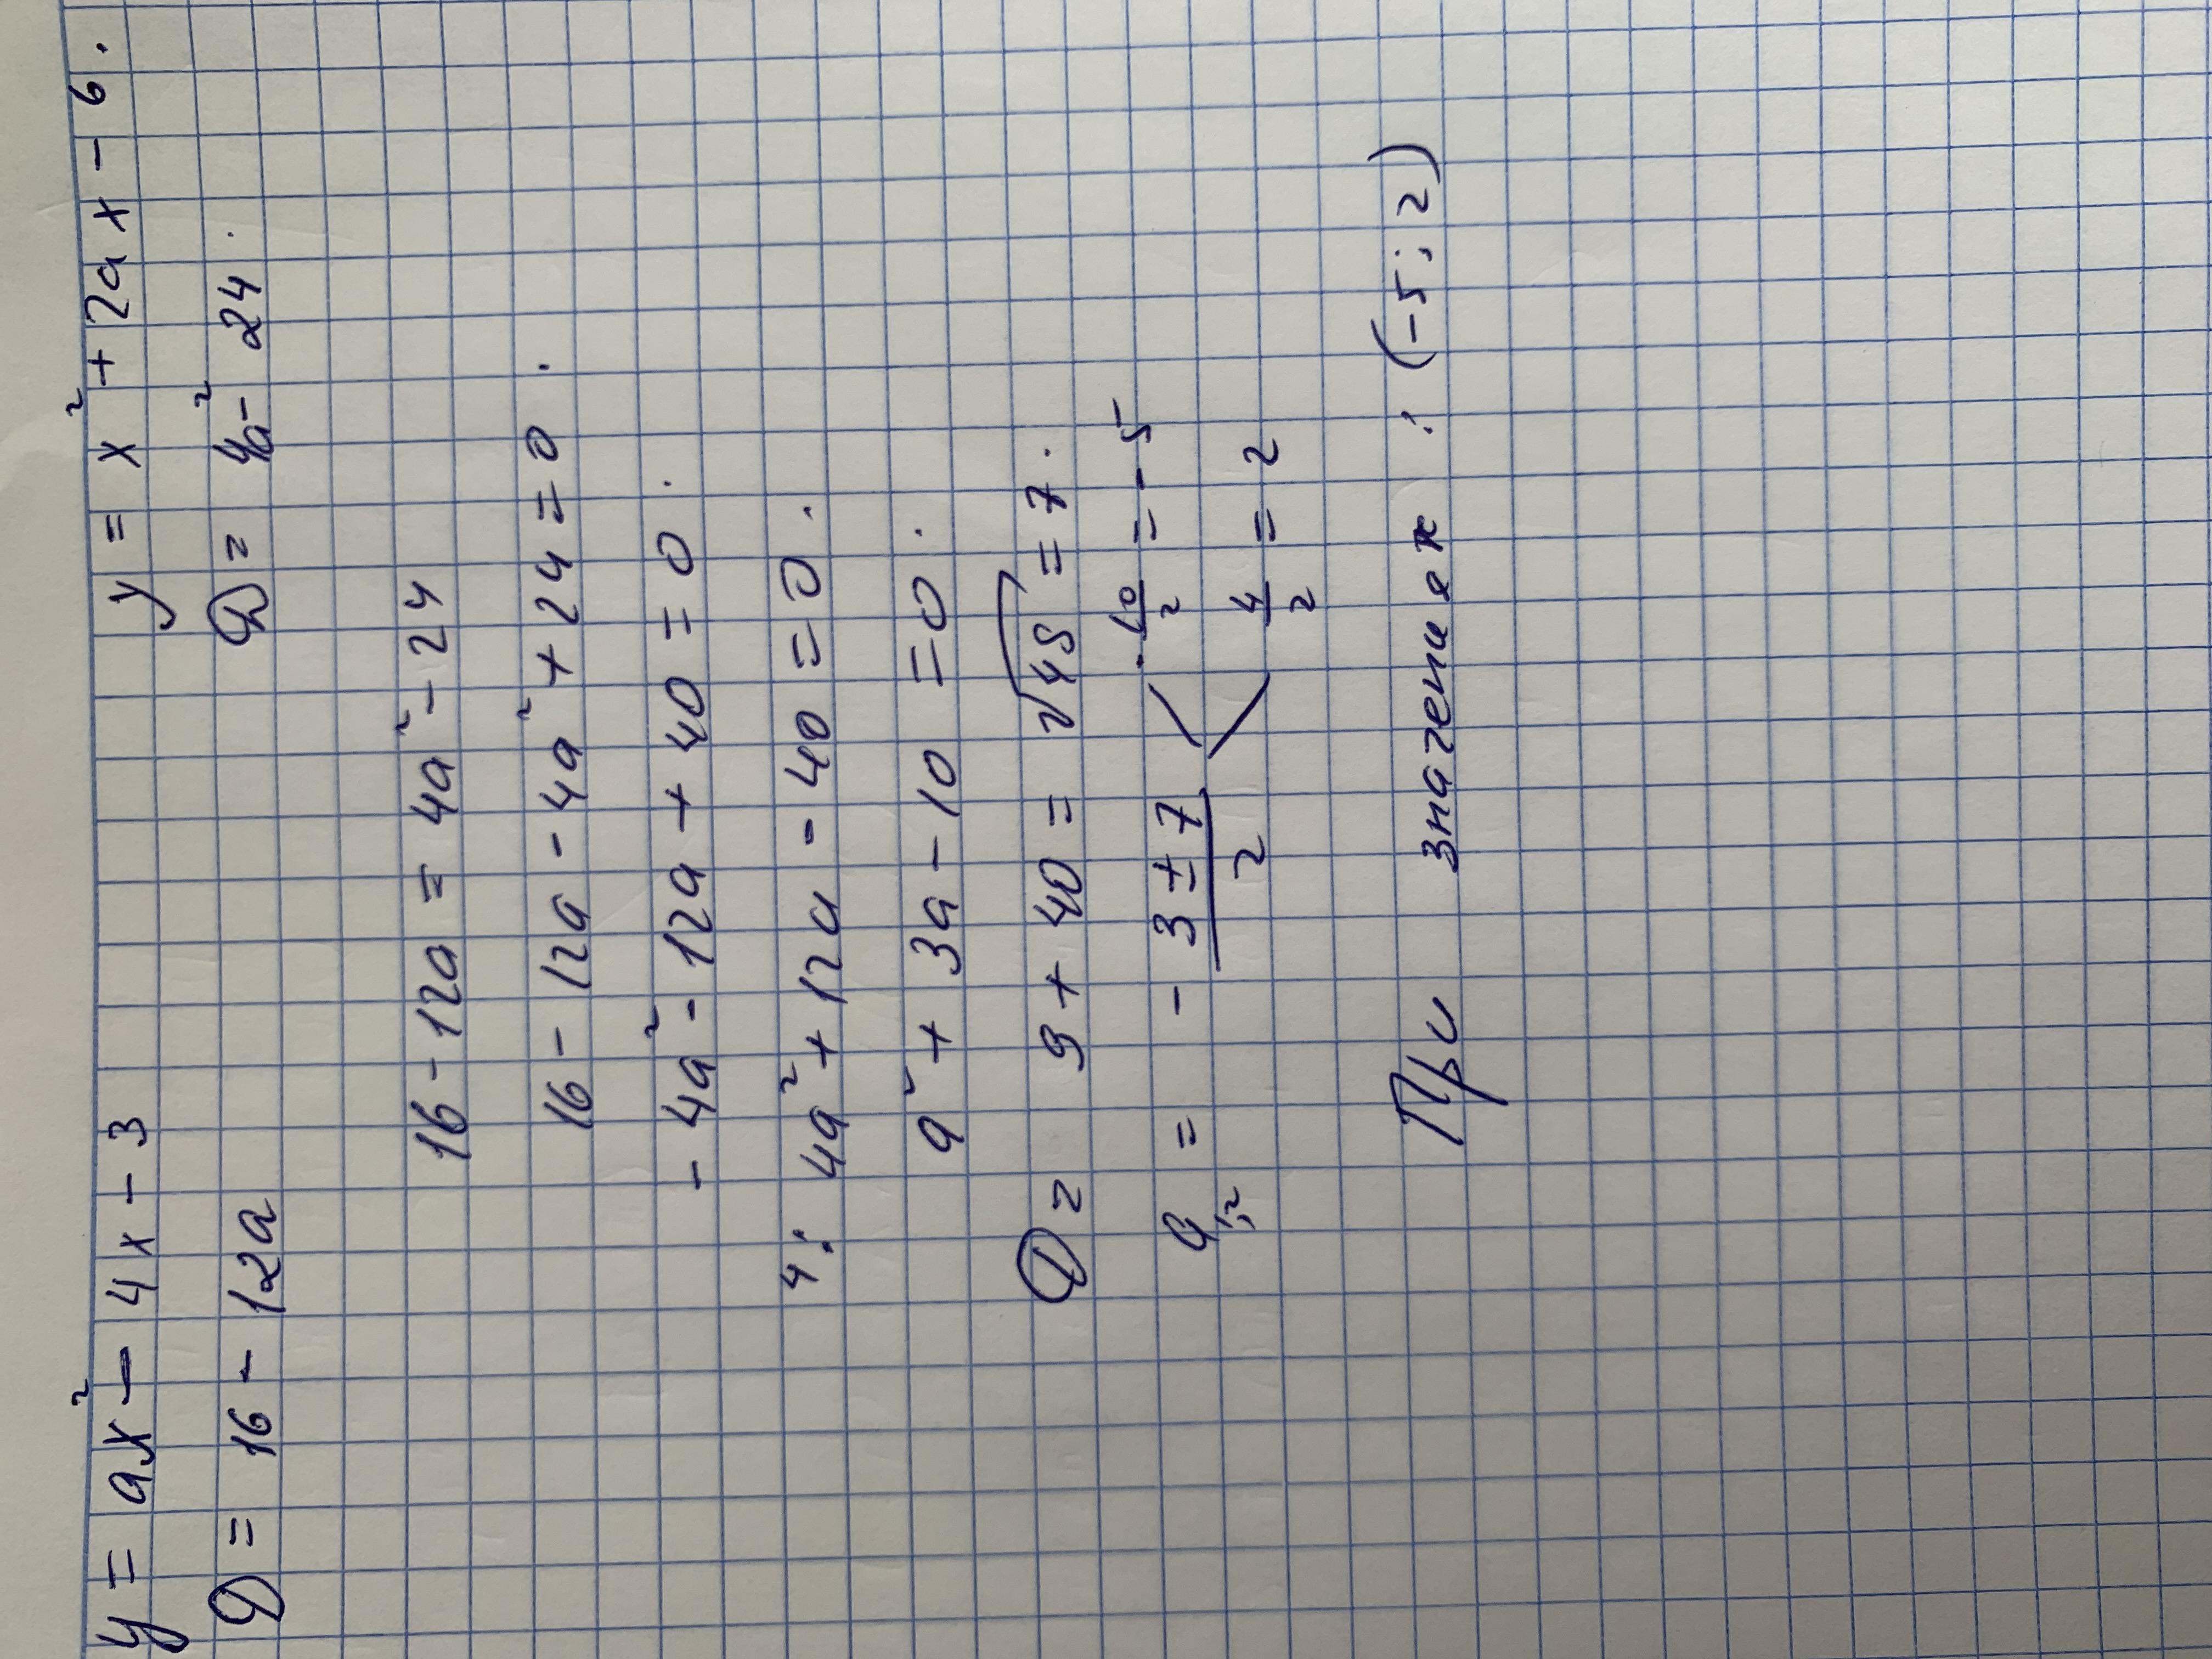 y = ax² - 4x - 3 y = x² + 2ax - 6.
D = 16 - 12a D = 4a² - 24.
16 - 12a = 4a² - 24
16 - 12a - 4a² + 24 = 0.
- 4a² - 12a + 40 = 0.
4: 4a² + 12a - 40 = 0.
a² + 3a - 10 = 0.
D = 9 + 40 = √49 = 7.
a₁,₂ = - 3 ± 7 / 2 < -10/2 = -5
4/2 = 2
При значениях : (-5; 2)